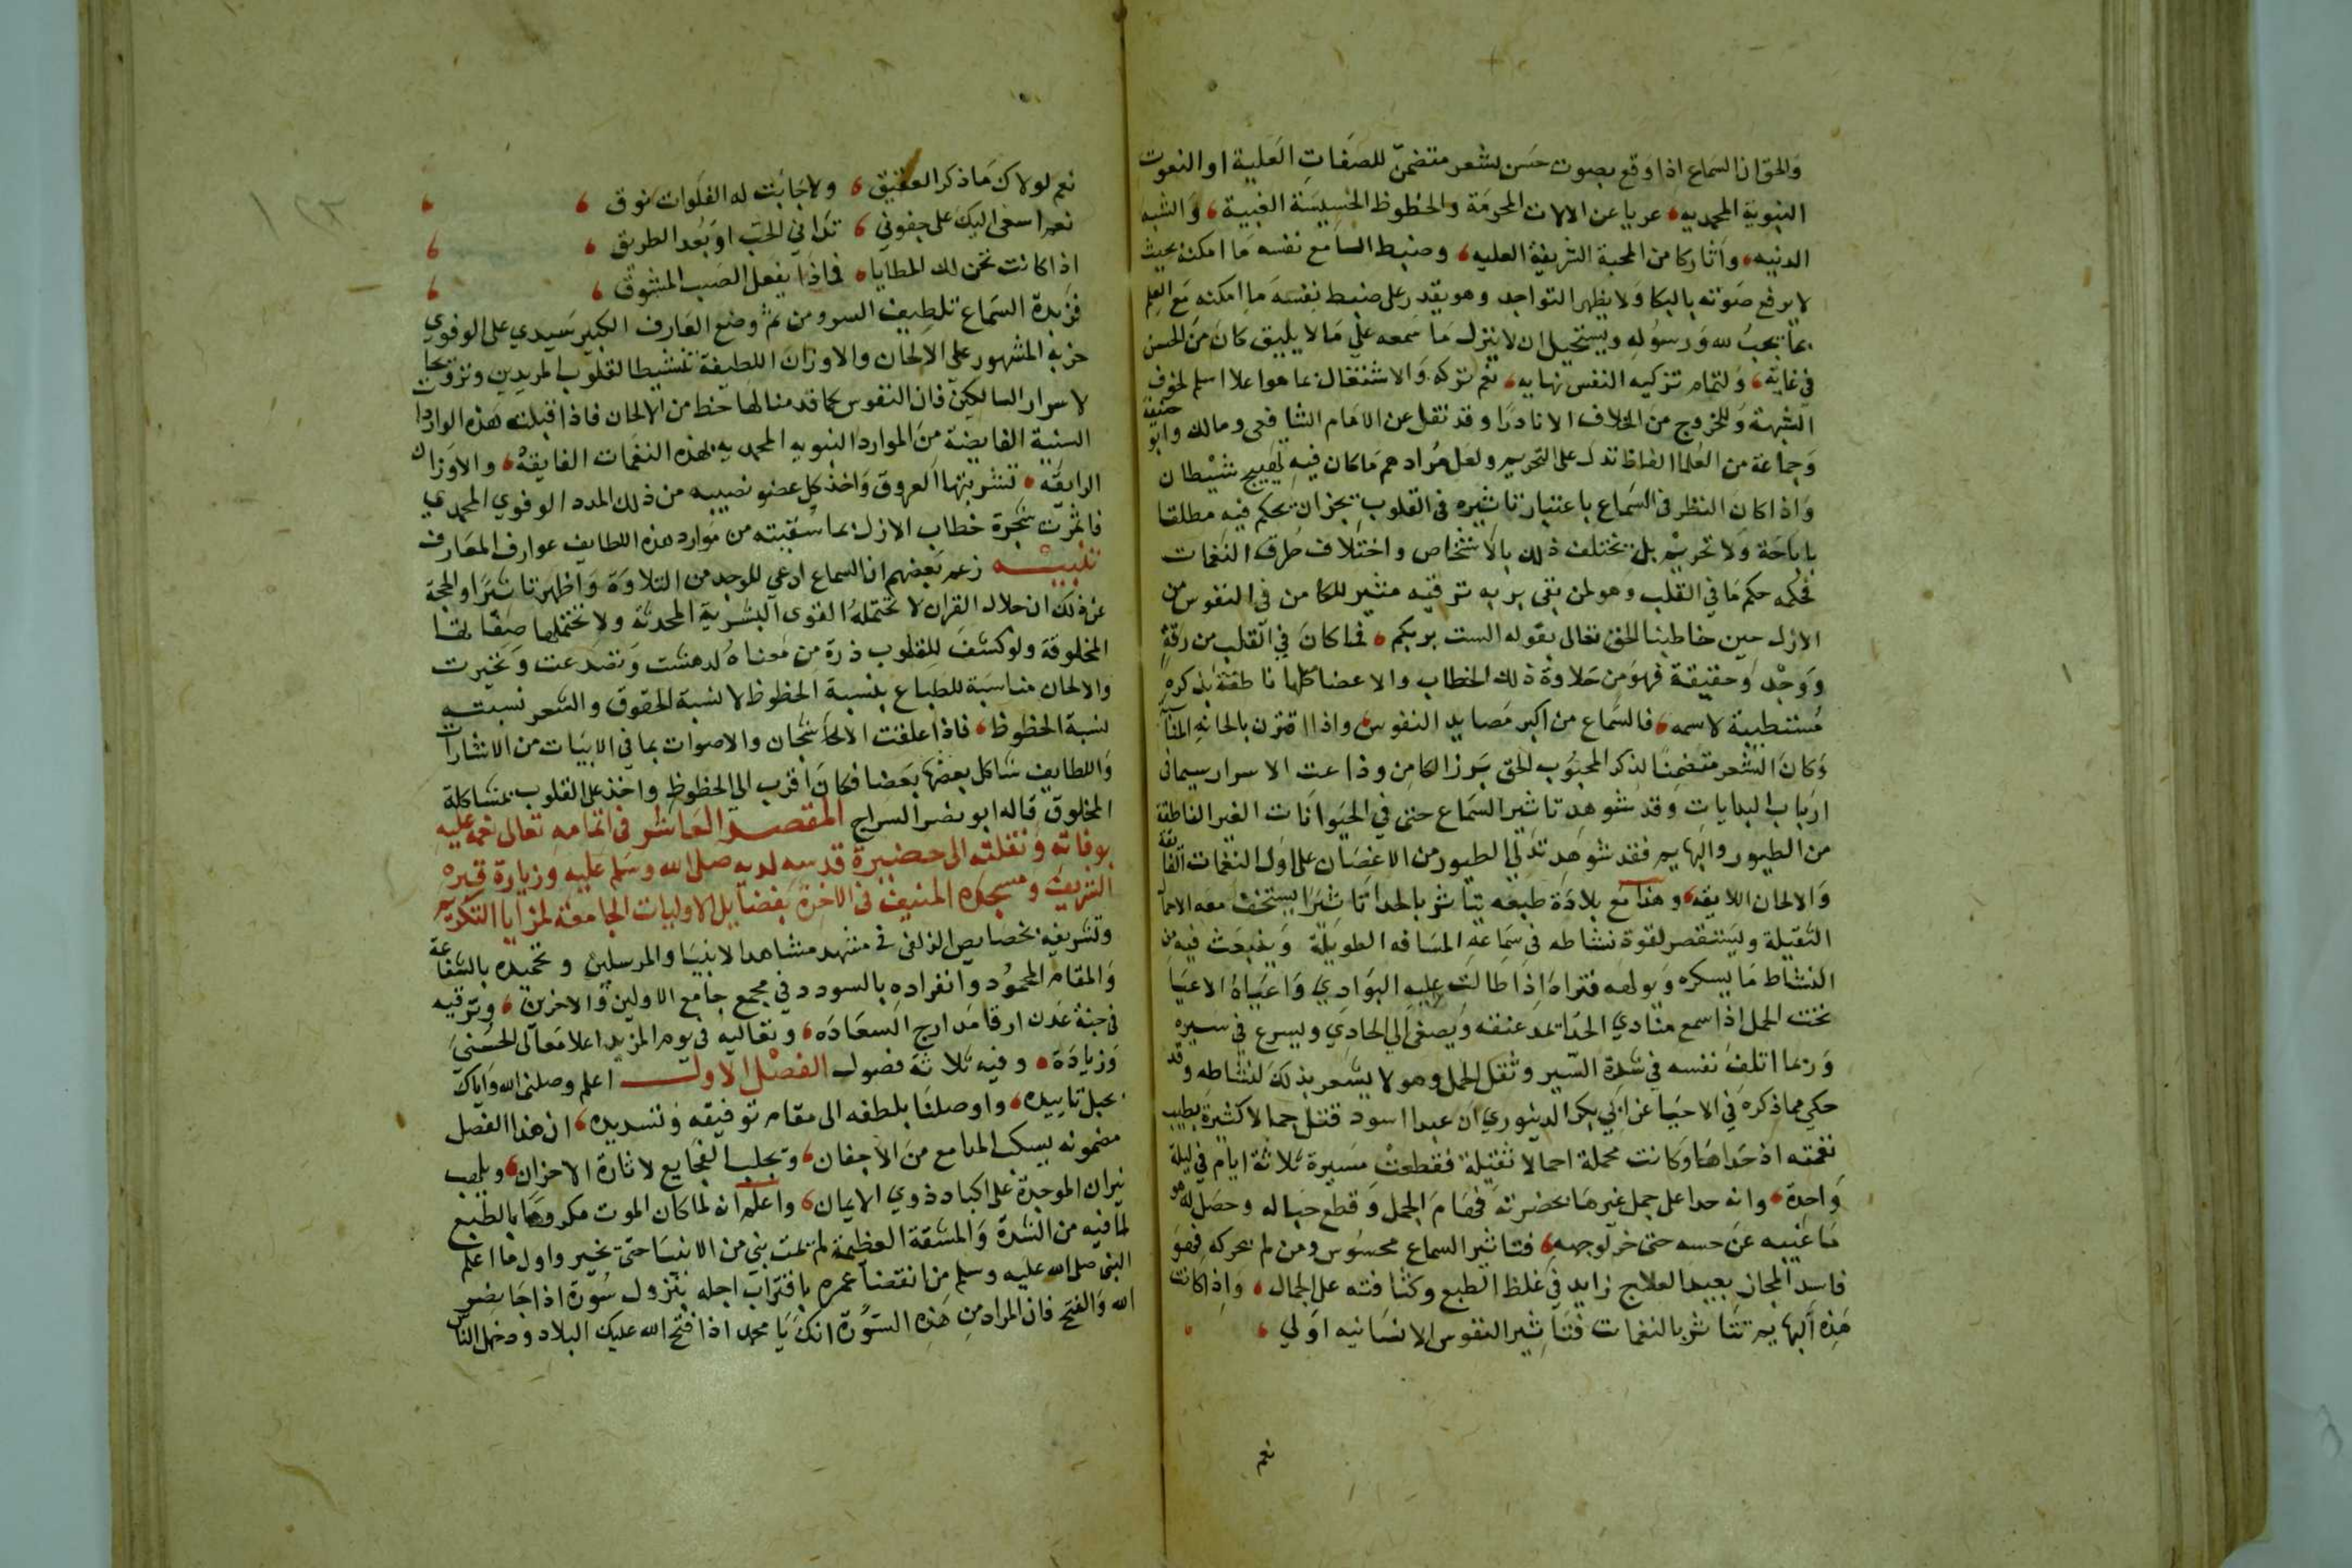 والحق ان السماع اذا وقع بصوت حسن لشعر متضمن للصفات العلية او النعوت
النبوية المحمديه، عريا عن الالات المحرمة والحظوظ الخسيسة الغبية، والشبه
الدنيه، واثار كامن المحبة الشريفة العليه، وضبط السامع نفسه ما امكنه بحيث
لا يرفع صوته بالبكا ولا يظهر التواجد وهو يقدر على ضبط نفسه ما امكنه مع العلم
بما يجب لله ورسوله ويستحيل ان لا ينزل ما سمعه على مالا يليق كان من الحسن
في غايه، ولتمام تزكيه النفس نهايه، نعم تركه والاشتغال بما هو اعلا اسلم لخوف
الشبهة وللخروج من الخلاف الا نادرا وقد نقل عن الامام الشافعى ومالك وابو حنيفة
وجماعة من العلما الفاظ تدل على التحريم ولعل مرادهم ما كان فيه تهييج شيطان
واذا كان النظر فى السماع باعتبار تاثيره فى القلوب يجز ان يحكم فيه مطلقا
باباحة ولا تحريم بل يختلف ذلك بالاشخاص واختلاف طرق النغمات
فحكمه حكم ما في القلب وهو لمن بقى بربه ترقيه مثير للكامن في النفوس من
الازل حين خاطبنا الحق تعالى بقوله الست بربكم، فما كان في القلب من رقة
ووجد وحقيقة فهو من حلاوة ذلك الخطاب والاعضا كلها ناطقة بذكره
مستطيبة لاسمه، فالسماع من اكبر مصايد النفوس، واذا اقترن بالحانه
وكان الشعر متضمنا لذكر المحبوب الحق برز الكامن وذاعت الاسرار سيمافى
ارباب البدايات وقد شوهد تاثير السماع حتى في الحيوانات الغير الناطقة
من الطيور والبهايم فقد شوهد تدلي الطيور من الاغصان على اول النغمات الفايقة
والالحان اللايقه، وهذا مع بلادة طبعه يتاثر بالحدا تاثيرا يستخف معه الاحمال
الثقيلة ويستقصر لقوة نشاطه فى سماعه المسافه الطويلة وينبعث فيه من
النشاط ما يسكره ويولهه فتراه اذا طالت عليه البوادي واعياه الاعيا
تحت الحمل اذا سمع منادي الحدا يمد عنقه ويصغى الي الحادي ويسرع في سيره
وربما اتلف نفسه في شدة السير وثقل الحمل وهو لا يشعر بذلك لنشاطه وقد
حكي مما ذكره في الاحيا عن ابي بكر الدينوري ان عبدا اسود قتل جمالا كثيرة بطيب
نغمته اذ حداها وكانت محملة احمالا ثقيلة فقطعت مسيرة ثلاثة ايام في ليلة
واحدة، وانه حدا على جمل غيرها بحضرته فهام الجمل وقطع حباله وحصل له هو
ما غيبه عن حسه حتى خر لوجهه، فتاثير السماع محسوس ومن لم يحركه فهو
فاسد المجاز بعيد العلاج زايد في غلظ الطبع وكثافته على الجمال، واذا كانت
هذه البهايم تتاثر بالنغمات فتاثير النفوس الانسانيه اولي،
نعم
نعم لولاك ما ذكر العقيق، ولا جابت له الفلوات نوق،
نعم اسعى اليك على جفوني، تدانى الحب او بعد الطريق،
اذا كانت تحن لك المطايا، فماذا يفعل الصب المشوق،
فزبدة السماع تلطيف السر ومن ثم وضع العارف الكبير سيدي على الوفوي
حزبه المشهور على الالحان والاوزان اللطيفة تنشيطا لقلوب المريدين وترويحا
لاسرار السالكين فان النفوس كما قدمنا لها حظ من الالحان فاذا قبلت هذه الواردات
السنية الفايضة من الموارد النبويه المحمديه بهذه النغمات الفايقة، والاوزان
الرايقة، تشربتها العروق واخذ كل عضو نصيبه من ذلك المدد الوفوي المحمدي
فاثمرت شجرة خطاب الازل بما سقيته من موارد هذه اللطايف عوارف المعارف
تنبيه زعم بعضهم ان السماع ادعى للوجد من التلاوة واظهر تاثيرا والحجة
عن ذلك ان جلال القران لا تحتمله القوى البشرية المحدثة ولا تحتملها صفاتها
المخلوقة ولو كشف للقلوب ذرة من معناه لدهشت وتصدعت وتحيرت
والالحان مناسبة للطباع بنسبة الحظوظ لا نسبة الحقوق والشعر نسبته
نسبة الحظوظ، فاذا علقت الالحا شجان والاصوات بما في الابيات من الاشارات
واللطايف شاكل بعضها بعضا فكان اقرب الى الحظوظ واخذ على القلوب بمشاكلة
المخلوق قاله ابو نصر السراج المقصد العاشر فى اتمامه تعالى نعمه عليه
بوفاته ونقلته الى حضيرة قدسه لديه صلى الله وسلم عليه وزيارة قبره
الشريف ومسجده المنيف فى الاخرة بفضايل الاوليات الجامعة لمزايا التكريم
وتشريفه بخصايص الزلفى فى مشهد مشاهد الانبيا والمرسلين وتحميده بالشفاعة
والمقام المحمود وانفراده بالسودد في مجمع جامع الاولين والاخرين، وترقيه
فى جنة عدن ارقا مدارج السعاده، وتعاليه فى يوم المزيد اعلا معالى الحسنى
وزيادة، وفيه ثلاثة فصول الفصل الاول اعلم وصلنى الله واياك
بحبل تاييده، واوصلنا بلطفه الى مقام توفيقه وتسديده، ان هذا الفصل
مضمونه يسكب المدامع من الاجفان، ويجلب الفجايع لاثارة الاحزان، ويلهب
نيران الموجدة على اكباد ذوي الايمان، واعلم انه لما كان الموت مكروها بالطبع
لما فيه من الشدة والمشقة العظيمة لم يمت نبي من الانبيا حتى تخير واول ما اعلم
النبى صلى الله عليه وسلم من انقضا عمره باقتراب اجله بنزول سورة اذا جا نصر
الله والفتح فان المراد من هذه السورة انك يا محمد اذا فتح الله عليك البلاد ودخل الناس